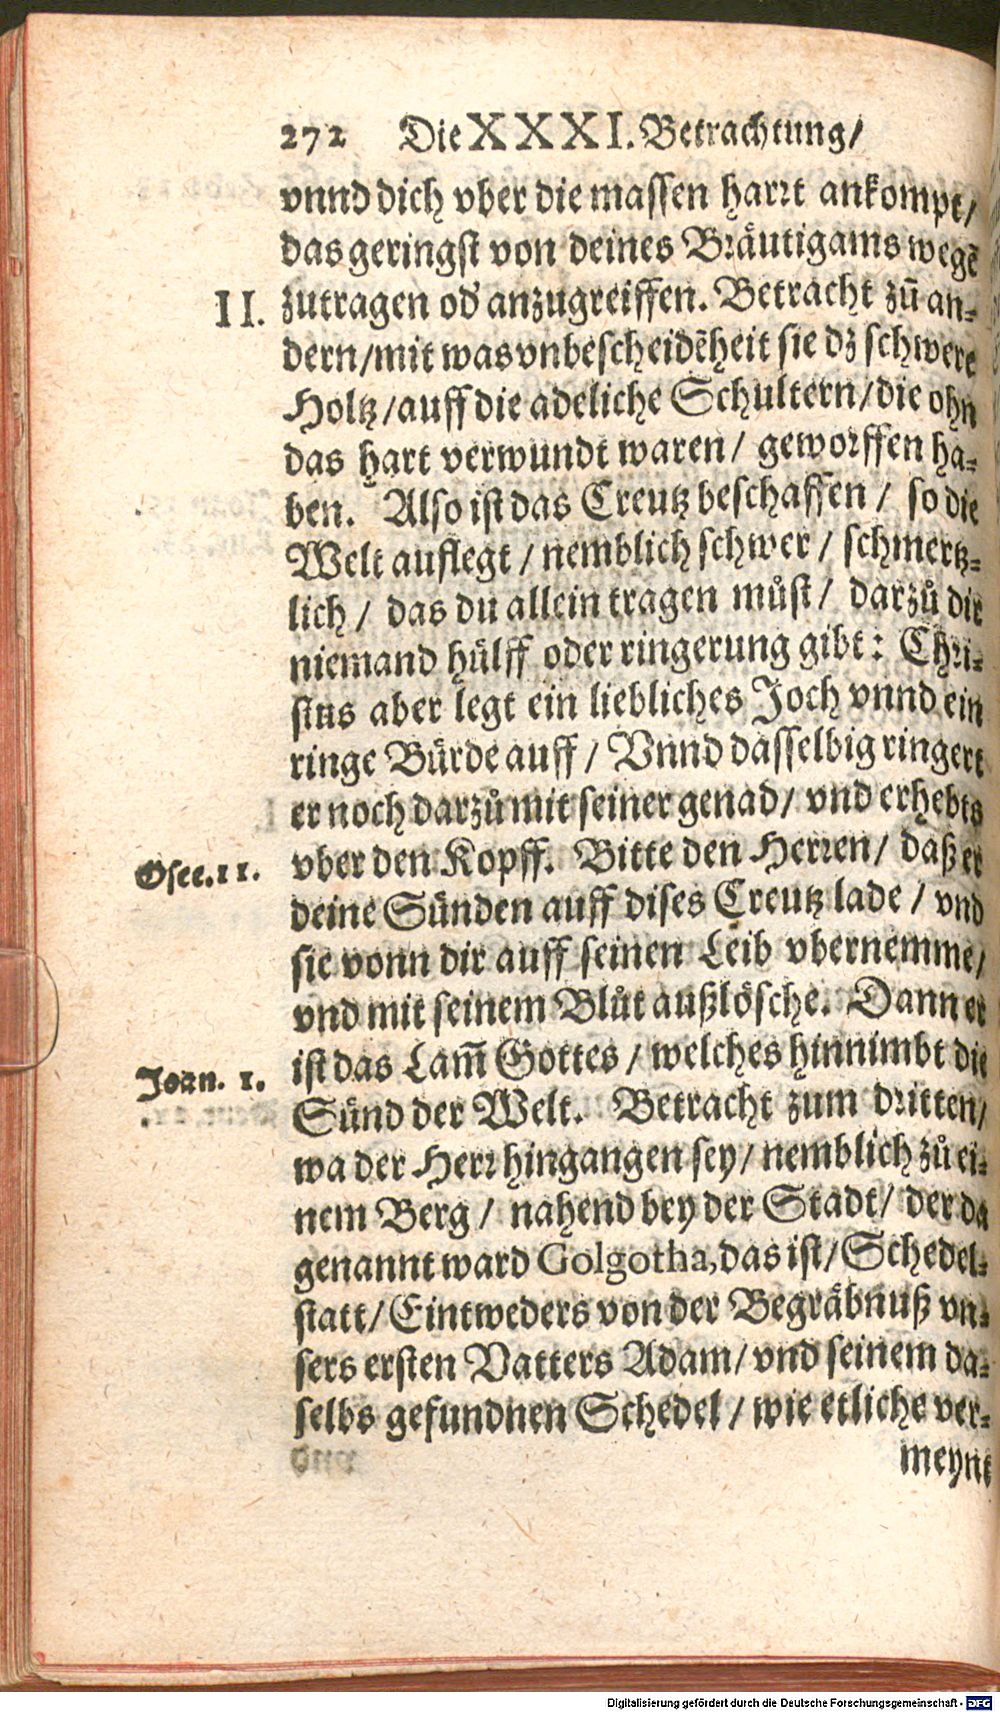 272 Die XXXI. Betrachtung/
vnnd dich vber die massen harrt ankompt/
das geringst von deines Bräutigams wegẽ
II. zutragen od' anzugreiffen. Betracht zũ an-
dern/mit was vnbescheidẽheit sie dz schwere
Holtz/auff die adeliche Schultern/die ohn
das hart verwundt waren/ geworffen ha-
ben. Also ist das Creutz beschaffen/ so die
Welt auflegt/nemblich schwer/ schmertz-
lich/ das du allein tragen můst/ darzů dir
niemand hülff oder ringerung gibt: Chri-
stus aber legt ein liebliches Joch vnnd ein
ringe Bürde auff/ Vnnd dasselbig ringert
er noch darzů mit seiner genad/ vnd erhebts
Osee.11. vber den Kopff. Bitte den Herren/ daß er
deine Sünden auff dises Creutz lade/ vnd
sie vonn dir auff seinen Leib vbernemme/
vnd mit seinem Blůt außlösche. Dann er
Joan. 1. ist das Lam̃ Gottes/ welches hinnimbt die
Sünd der Welt. Betracht zum dritten/
wa der Herr hingangen sey/ nemblich zů ei-
nem Berg/ nahend bey der Stadt/ der da
genannt ward Golgotha, das ist/Schedel-
statt/Eintweders von der Begräbnuß vn-
sers ersten Vatters Adam/ vnd seinem da-
selbs gefundnen Schedel/ wie etliche ver-
meynt
Digitalisierung gefördert durch die Deutsche Forschungsgemeinschaft - DFG